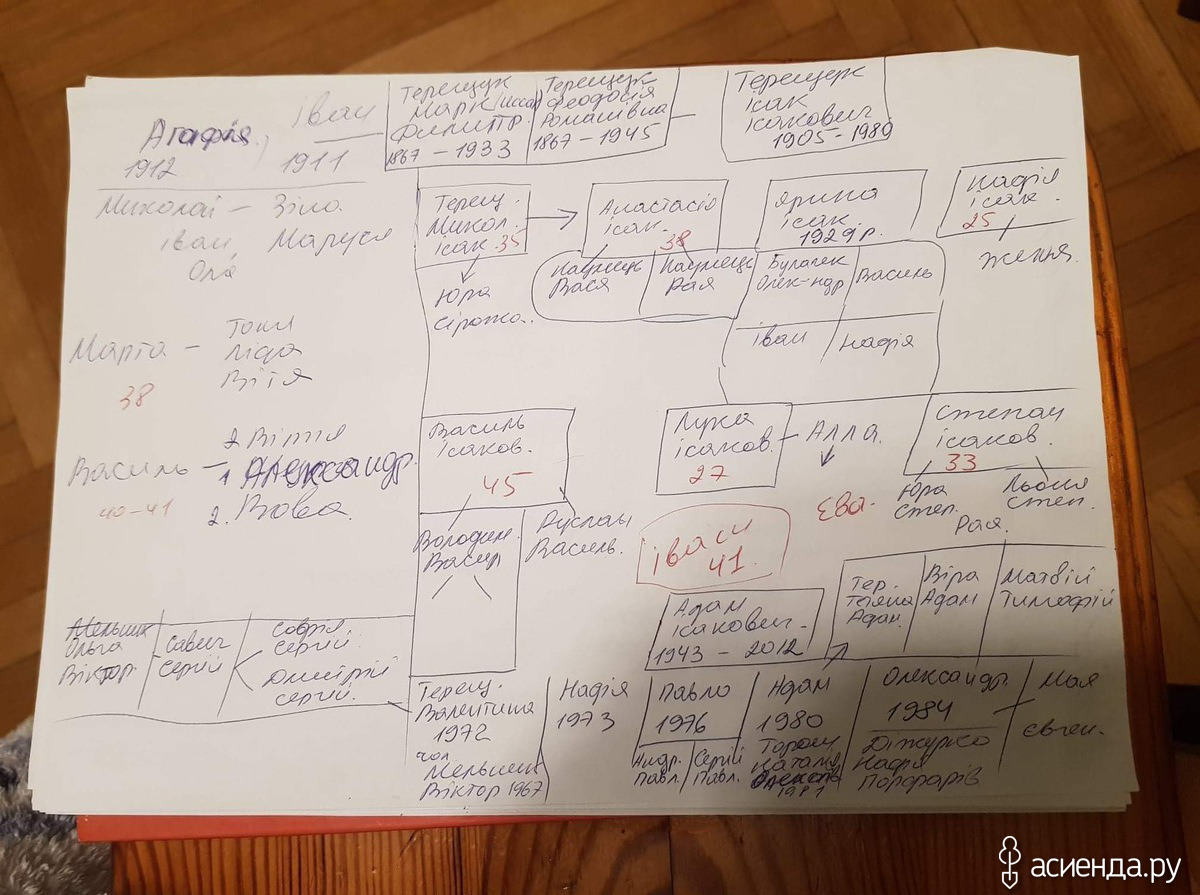 Агафія,
1912
Іван
1911
Терещук
Марк
1867 – 1933
Терещук
Феодосія
Романівна
1867 – 1945
Терещук
Ісак
Ісакович
1905 – 1980
Миколай – Зіна
Іван, Маруся
Оля
Терещ.
Микол.
Ісак. 35
Юра
Сірожа.
Анастасія
Ісак.
38
Вася
Рая
Ярина
Ісак.
1929 р.
Олек-ндр
Василь
Іван
Надія
Надія
Ісак.
25
Женья.
Марта –
38
Ліда
Вітя
Василь –
40-41
2 Вітя
1 Александр.
2. Вова
Василь
Ісаков.
45
Володим.
Васил
Руслан
Василь.
Лука
Ісаков. – Алла.
27
Ева.
Степан
Ісаков.
33
Юра
Степ.
Рая.
Льоня
Степ.
Іван
41
Адам
Ісакович –
1943 – 2012
Тер.
Тетяна
Адам.
Віра
Адам
Матвій
Тимофій
Мельник
Ольга
Віктор.
Савич
Сергій
Софія
Сергій.
Дмитрій
Сергій.
Терещ.
Валентина
1972
чол
Мельник
Віктор 1967
Надія
1973
Павло
1976
Андр.
Павл.
Сергій
Павл.
Адам
1980
Наталя
1981
Олександр.
1984
Надія
Мая
Євген.
асиенда.ру